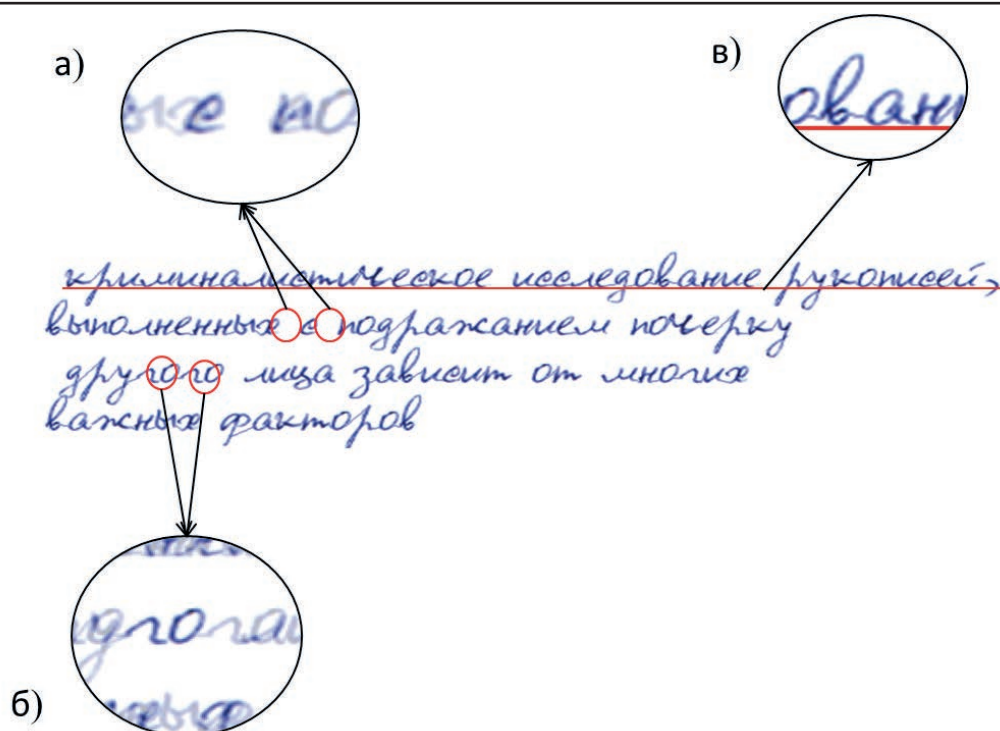 а)
в)
ые по
овани
криминалистическое исследование рукописей,
выполненных с подражанием почерку
другого лица зависит от многих
важных факторов
гого
б)